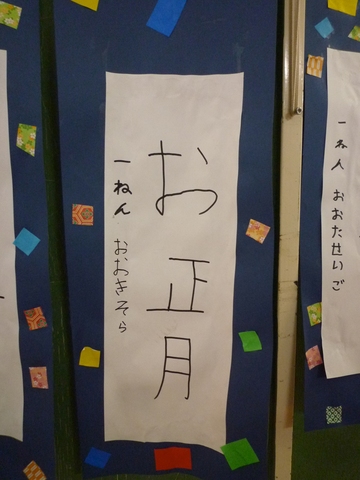 お正月
一ねん おおきそら
一ね人 おおたせいご